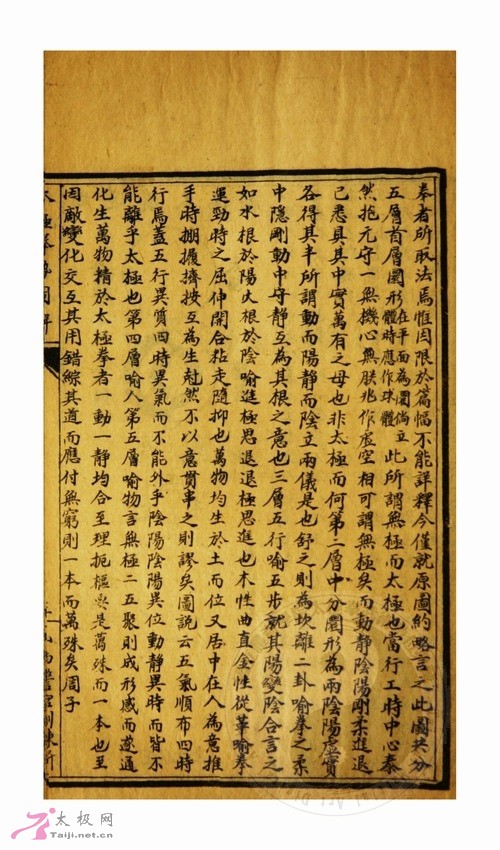 拳者所取法焉惟因限於篇幅不能詳釋今僅就原圖約略言之此圖共分
五層首層圜形在平面為圜倘立體時應作球體此所謂無極而太極也當行工時中心泰
然抱元守一無機心無朕兆作虛空相可謂無極矣而動靜陰陽剛柔進退
已悉具其中實萬有之母也非太極而何第二層中分圜形為兩陰陽虛實
各得其半所謂動而陽靜而陰立兩儀是也舒之則為坎離二卦喻拳之柔
中隱剛動中守靜互為其根之意也三層五行喻五步就其陽變陰合言之
如水根於陽火根於陰喻進極思退退極思進也木性曲直金性從革喻拳
運勁時之屈伸開合粘走隨抑也萬物均生於土而位又居中在人為意推
手時掤攦擠按互為生尅然不以意貫串之則謬矣圖說云五氣順布四時
行焉蓋五行異質四時異氣而不能外乎陰陽陰陽異位動靜異時而皆不
能離乎太極也第四層喻人第五層喻物言無極二五聚則成形感而遂通
化生萬物精於太極拳者一動一靜均合至理扼樞要是萬殊而一本也至
因敵變化交互其用錯綜其道而應付無窮則一本而萬殊矣周子
太极网
Taiji.net.cn